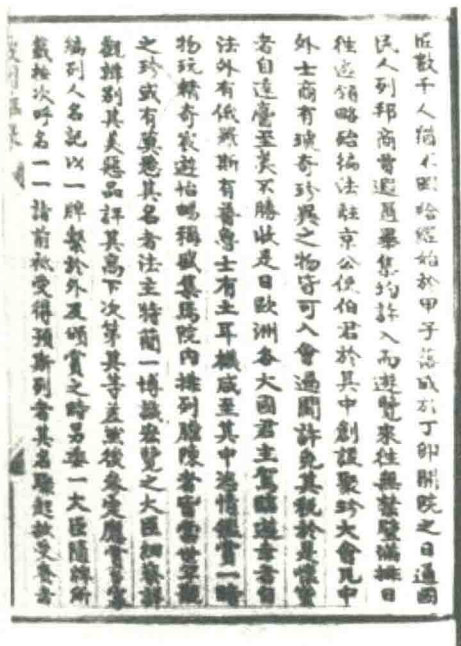 匠數千人猶不經始於甲子落成於丁卯開院之日通國
民人列邦商賈遐邇畢集均許入而遊覽來往無禁
往遊領略殆徧法駐京公使伯君於其中創設聚珍大會凡中
外士商有瑰奇珍異之物皆可入會過關許免其稅於是懷寶
者自遠麕至美不勝收是日歐洲各大國君主駕臨遊幸者自
法外有俄羅斯有普魯士有土耳機咸至其中恣情鑑賞一時
物玩精奇裘遊怡暢稱盛集焉院內排列臚陳者皆當世罕覯
之珍或有冀獲其名者法主特簡一博識宏覽之大臣細察詳
觀辨別其美惡品評其高下次第其等差然後參定應賞
編列人名記以一牌繫於外及頒賞之時另委一大臣隨牌所
載挨次呼名一一詣前祗受得預斯列者其名驟起故受賞者